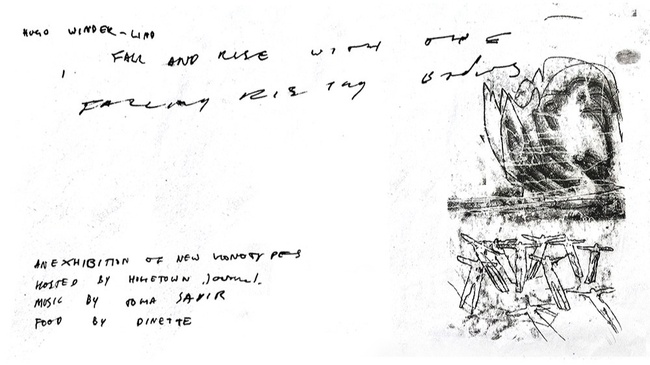 HUGO WINDER-LIND
FALL AND RISE WITH ONE
FALLING RISING
AN EXHIBITION OF NEW MONOTYPES
HOSTED BY HOMETOWN Journal.
MUSIC BY SAVIR
FOOD BY DINETTE